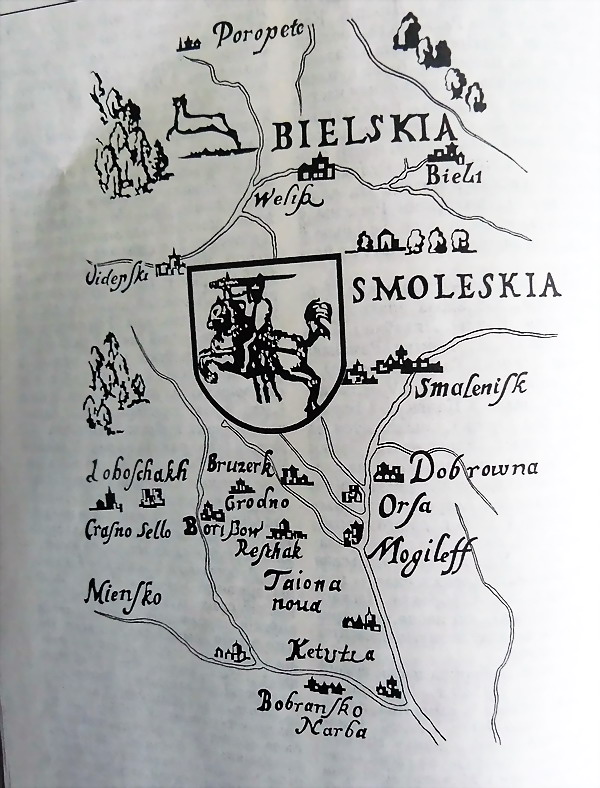 Poropetc
BIELSKIA
Bieli
Weliſz
Videpski
SMOLESKIA
Smaleniſk
Loboſchakh
Bruzerk
Dobrowna
Grodno
Orſa
Craſno Sello
Borißow
Reſthak
Mogileff
Taiona
noua
Mienſko
Bobranſko
Narba